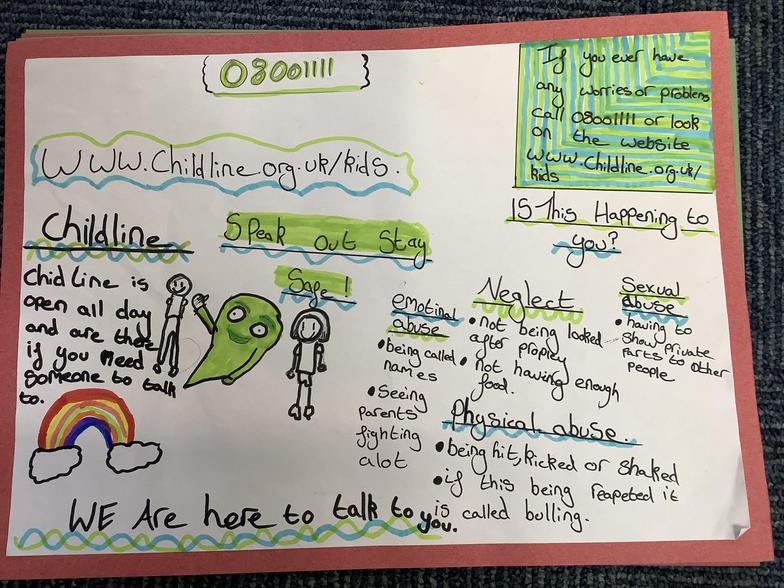 08001111
If you ever have
any worries or problems
call 08001111 or look
on the website
www.Childline.org.uk/
kids
WWW.Childline.org.uk/kids.
Childline
Speak out Stay
Safe!
IS This Happening to
you?
Chid Line is
open all day
and are there
if you need
Someone to talk
to.
emotinal
abuse
•being called
names
•Seeing
parents
fighting
alot
Neglect
•not being looked
after propley
•not having enough
food.
Sexual
abuse
•having to
show private
Parts to other
people
Physical abuse.
•being hit, kicked or shaked
•if this being reapeted it
is called bulling.
WE Are here to talk to you.